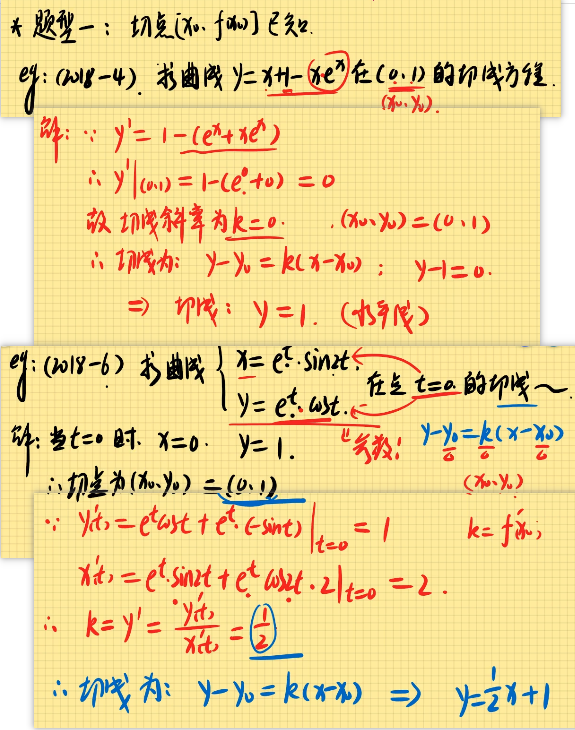 * 题型一：切点[x₀, f(x₀)]已知.
eg: (2018-4). 求曲线 y=x+1-xeˣ 在(0,1)的切线方程.
(x₀,y₀).
解: ∵ y'=1-(eˣ+xeˣ)
∴ y'|(0,1)=1-(e⁰+0)=0
故切线斜率为k=0. (x₀,y₀)=(0,1)
∴ 切线为: y-y₀=k(x-x₀); y-1=0.
⇒ 切线: y=1. (水平线)
eg: (2018-6) 求曲线 { x=eᵗ·sin2t. 在点 t=0 的切线~.
y=eᵗ·cost.
解: 当t=0时. x=0. y=1. 参数! y-y₀=k(x-x₀)
∴ 切点为(x₀,y₀)=(0,1) (x₀,y₀)
∵ y'(t)=eᵗcost+eᵗ·(-sint)|t=0 =1 k=f'(x₀)
x'(t)=eᵗ·sin2t+eᵗ·cos2t·2|t=0 =2.
∴ k=y'=y'(t)/x'(t)=1/2
∴ 切线为: y-y₀=k(x-x₀) ⇒ y=1/2x+1